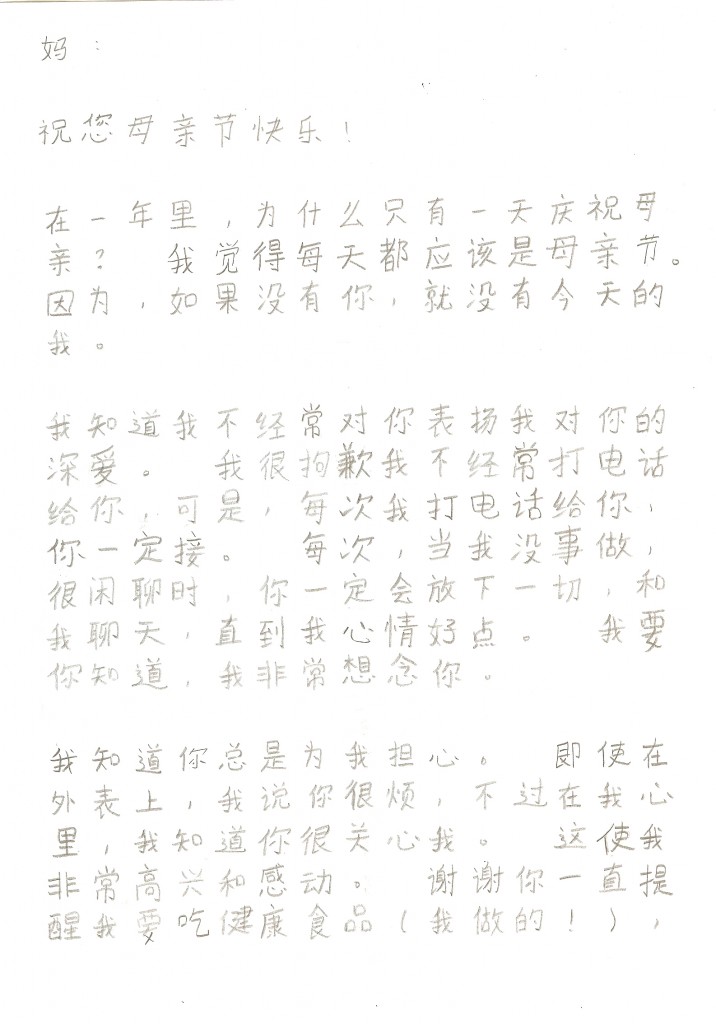 妈：
祝您母亲节快乐！
在一年里，为什么只有一天庆祝母
亲？ 我觉得每天都应该是母亲节。
因为，如果没有你，就没有今天的
我。
我知道我不经常对你表扬我对你的
深爱。 我很拘歉我不经常打电话
给你，可是，每次我打电话给你，
你一定接。 每次，当我没事做，
很闲聊时，你一定会放下一切，和
我聊天，直到我心情好点。 我要
你知道，我非常想念你。
我知道你总是为我担心。 即使在
外表上，我说你很烦，不过在我心
里，我知道你很关心我。 这使我
非常高兴和感动。 谢谢你一直提
醒我要吃健康食品（我做的！），